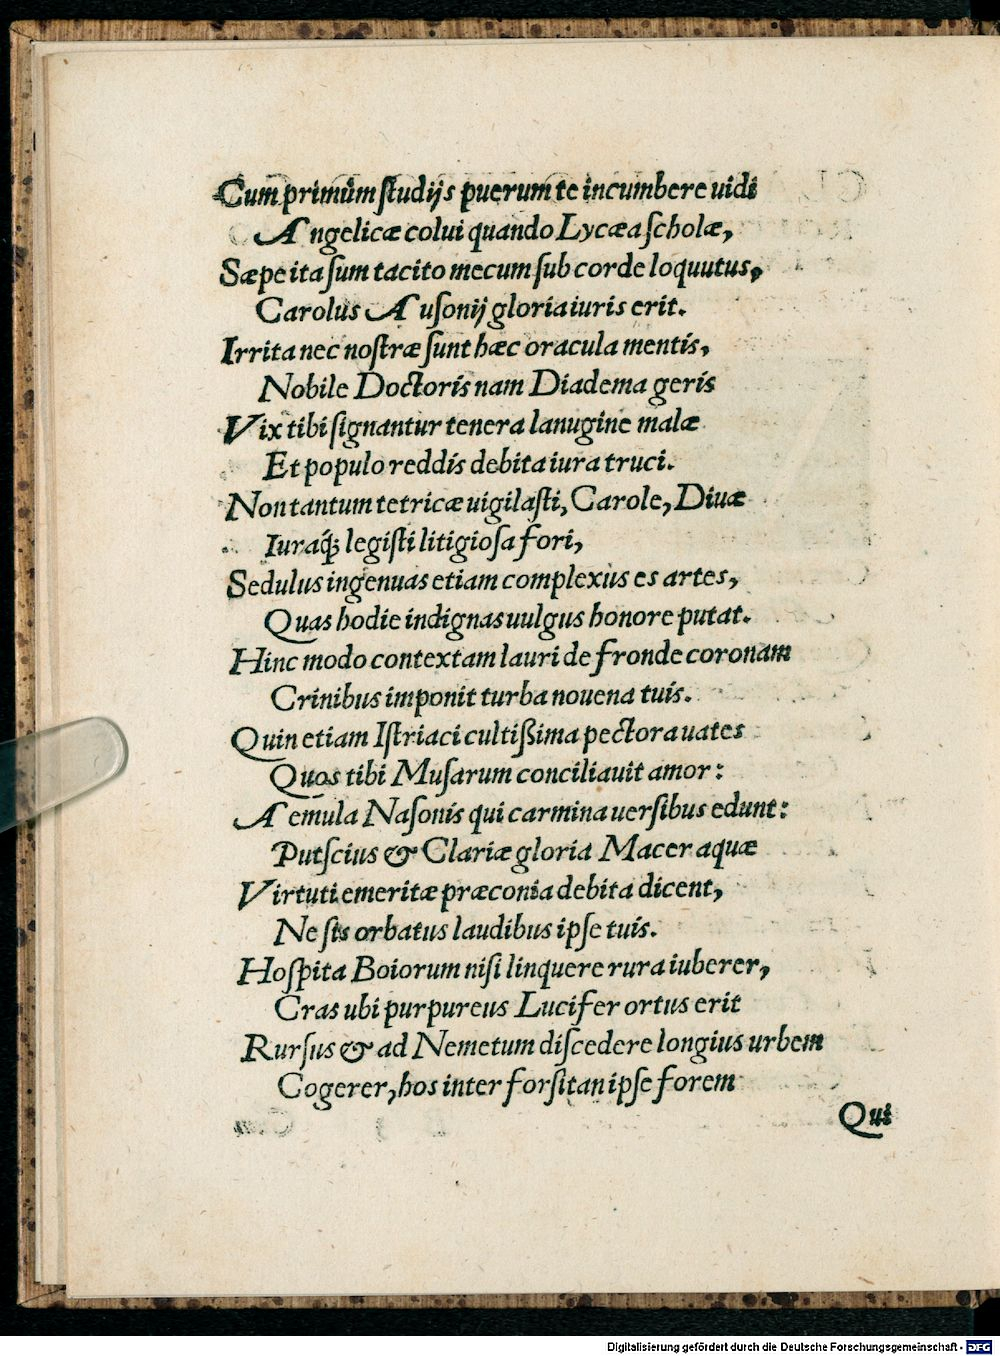 Cum primùm studijs puerum te incumbere uidi
Angelicæ colui quando Lycæa scholæ,
Sæpe ita sum tacito mecum sub corde loquutus,
Carolus Ausonij gloria iuris erit.
Irrita nec nostræ sunt hæc oracula mentis,
Nobile Doctoris nam Diadema geris
Vix tibi signantur tenera lanugine malæ
Et populo reddis debita iura truci.
Non tantum tetricæ uigilasti, Carole, Diuæ
Iuraq́; legisti litigiosa fori,
Sedulus ingenuas etiam complexus es artes,
Quas hodie indignas uulgus honore putat.
Hinc modo contextam lauri de fronde coronam
Crinibus imponit turba nouena tuis.
Quin etiam Istriaci cultißima pectora uates
Quos tibi Musarum conciliauit amor:
Aemula Nasonis qui carmina uersibus edunt:
Putscius & Clariæ gloria Macer aquæ
Virtuti emeritæ præconia debita dicent,
Ne sis orbatus laudibus ipse tuis.
Hospita Boiorum nisi linquere rura iuberer,
Cras ubi purpureus Lucifer ortus erit
Rursus & ad Nemetum discedere longius urbem
Cogerer, hos inter forsitan ipse forem
Qui
Digitalisierung gefördert durch die Deutsche Forschungsgemeinschaft - DFG